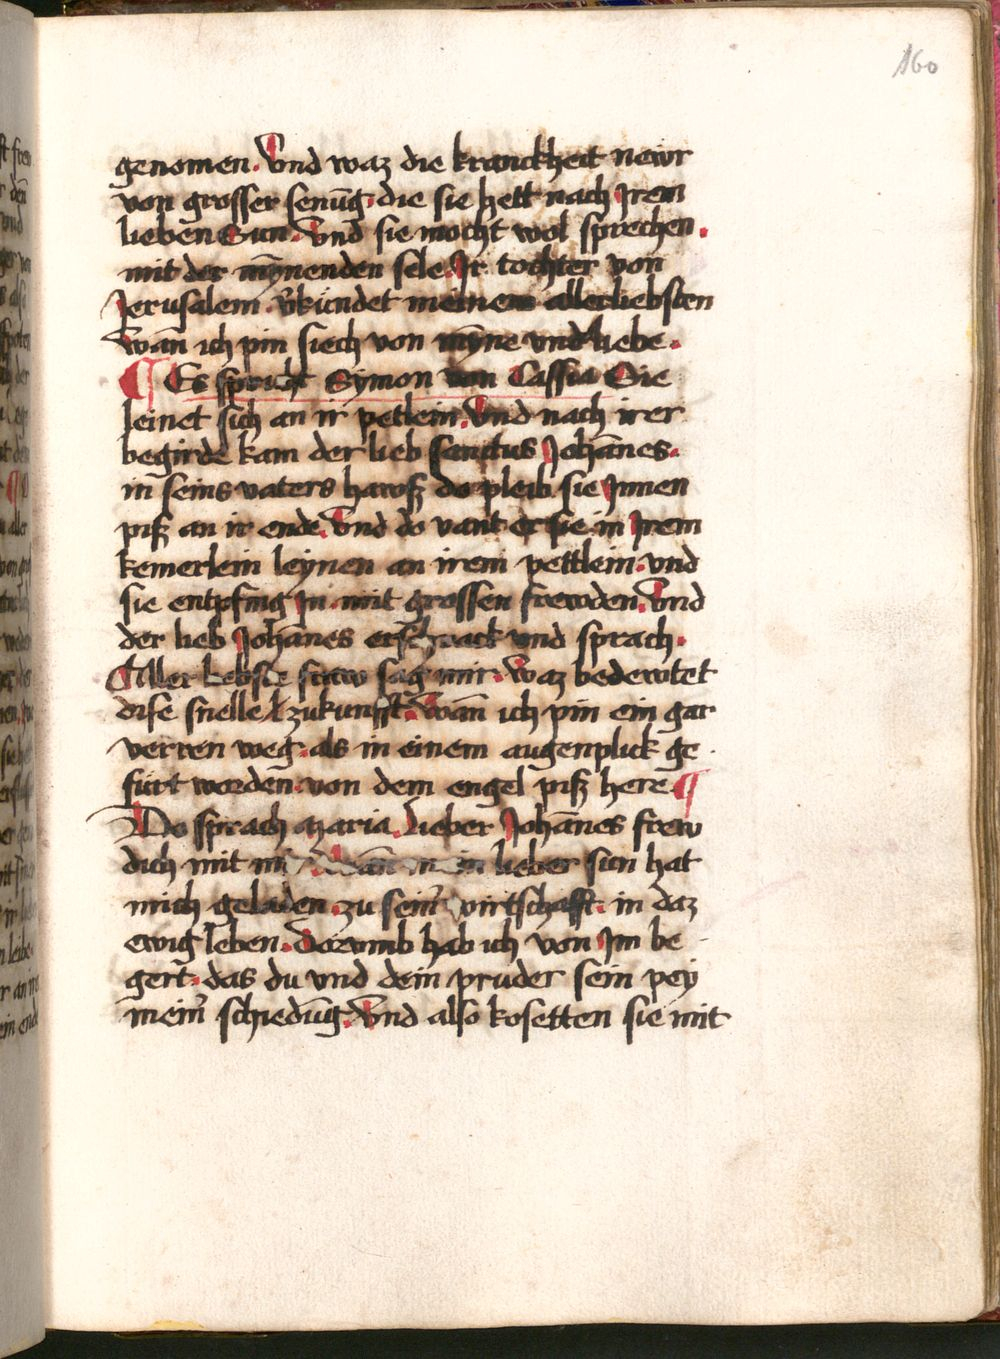 160
genomen. Vnd waz die kranckheit newr
von grosser senūg. die sie hett nach Jrem
lieben Sun. Vnd sie mocht wol sprechen.
mit der mȳnenden sele. Jr tochter von
Jerusalem. v̄kündet meinem allerliebsten
Wan̄ ich pin siech von mȳne vnd liebe.
¶ Es spricht Symon von Cassia Sie
leinet sich an ir petlein. Vnd nach irer
begirde kam der lieb sanctus Johānes.
in seins vaters hawsz do pleib sie Jnnen
pisz an ir ende. Vnd do vant er sie in Jrem
kemerlein leynen an irem pettlein. vnd
sie entpfing Jn. mit grossen frewden. Vnd
der lieb Johānes erschrack vnd sprach.
Aller liebste fraw sag mir. Waz bedewtet
dise snelle zukunfft. Wan̄ ich pin ein gar
verren weg. als in einem augenplick ge
fürt worden. von dem engel pisz here ¶
Do sprach Maria. Lieber Johānes frew
dich mit mir Wan̄ mein lieber sun hat
mich geladen. zu sein̄ wirtschafft. in daz
ewig leben. Dorumb hab ich von Jm be
gert. das du vnd dein pruder sein pey
mein̄ schiedūg. Vnd also kosetten sie mit